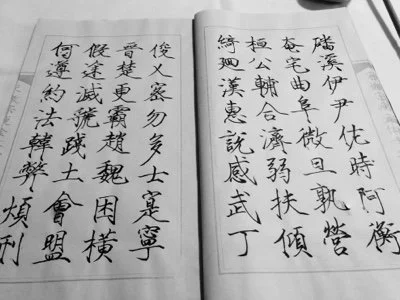 磻溪伊尹佐時阿衡
奄宅曲阜微旦孰營
桓公輔合濟弱扶傾
綺廻漢惠說感武丁
俊乂密勿多士寔寧
晉楚更霸趙魏困橫
假途滅虢踐土會盟
何遵約法韓弊煩刑